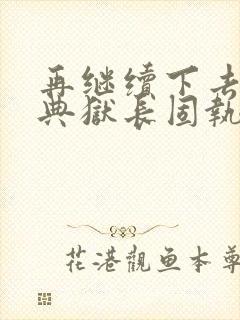 再继续下去
典獄长固執
花港觀鱼本尊